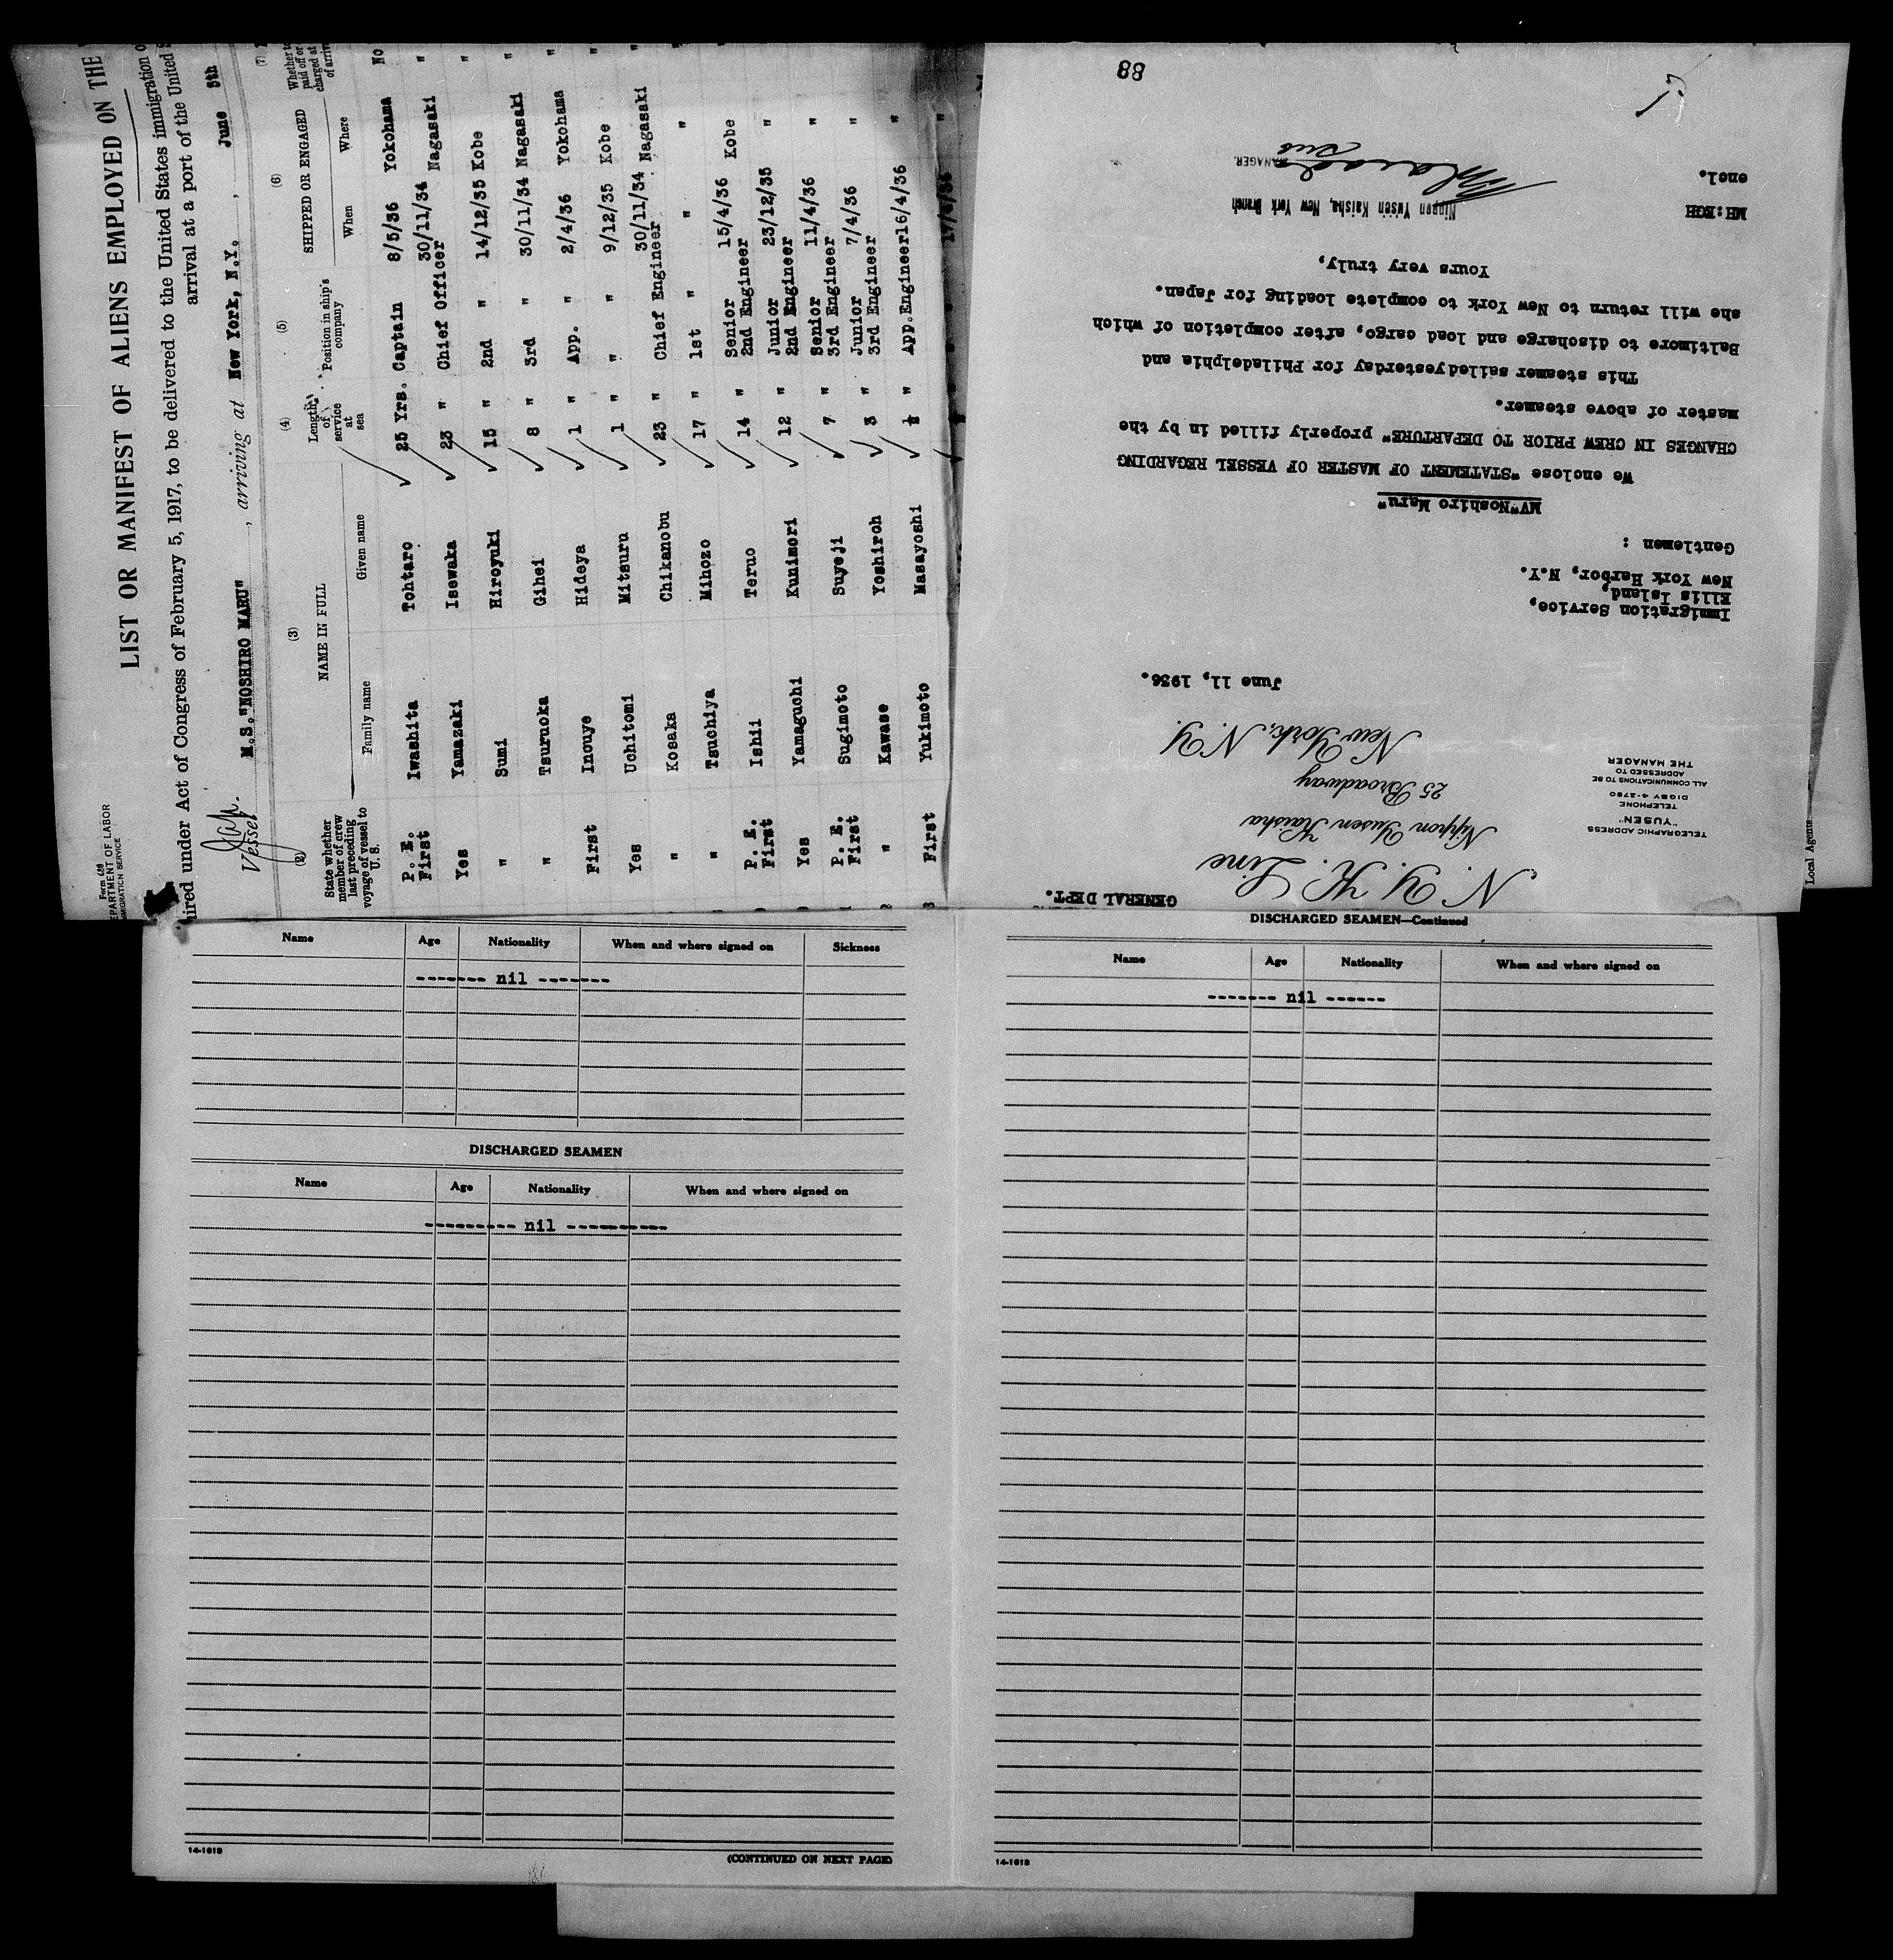 Form 689
DEPARTMENT OF LABOR
IMMIGRATION SERVICE
LIST OR MANIFEST OF ALIENS EMPLOYED ON THE
ired under Act of Congress of February 5, 1917, to be delivered to the United States immigration
arrival at a port of the United
Vessel M.S."NOSHIRO MARU", arriving at New York, N.Y., June 5th
(2) (3) (4) (5) (6) (7)
State whether member of crew last preceding voyage of vessel to U. S.
NAME IN FULL
Family name Given name
Length of service at sea
Position in ship's company
SHIPPED OR ENGAGED
When Where
P. E. First Iwashita Tohtaro 25 Yrs. Captain 8/5/36 Yokohama No
Yes Yamazaki Isewaka 23 " Chief Officer 30/11/34 Nagasaki "
" Sumi Hiroyuki 15 " 2nd " 14/12/35 Kobe "
" Tsuruoka Gihei 8 " 3rd " 30/11/34 Nagasaki "
First Inouye Hideya 1 " App. " 2/4/36 Yokohama "
Yes Uchitomi Mitsuru 1 " " " 9/12/35 Kobe "
" Kosaka Chikanobu 23 " Chief Engineer 30/11/34 Nagasaki "
" Tsuchiya Mihozo 17 " 1st " " " "
P. E. First Ishii Teruo 14 " Senior 2nd Engineer 15/4/36 Kobe
Yes Yamaguchi Kunimori 12 " Junior 2nd Engineer 23/12/35 "
P. E. First Sugimoto Suyeji 7 " Senior 3rd Engineer 11/4/36 "
" Kawase Yoshiroh 3 " Junior 3rd Engineer 7/4/36 "
First Yukimoto Masayoshi ½ " App.Engineer 16/4/36 "
17/4/36 "
GENERAL DEPT.
N. Y. K. Line
Nippon Yusen Kaisha
25 Broadway
New York, N.Y.
TELEGRAPHIC ADDRESS
"YUSEN"
TELEPHONE
DIGBY 4-2780
ALL COMMUNICATIONS TO BE
ADDRESSED TO
THE MANAGER
June 11, 1936.
Immigration Service,
Ellis Island,
New York Harbor, N.Y.
Gentlemen :
MV"Noshiro Maru"
We enclose "STATEMENT OF MASTER OF VESSEL REGARDING
CHANGES IN CREW PRIOR TO DEPARTURE" properly filled in by the
master of above steamer.
This steamer sailed yesterday for Philadelphia and
Baltimore to discharge and load cargo, after completion of which
she will return to New York to complete loading for Japan.
Yours very truly,
Nippon Yusen Kaisha, New York Branch
MANAGER.
MH:EGH
encl.
88
Local Agents
Name Age Nationality When and where signed on Sickness
------- nil -------
DISCHARGED SEAMEN
Name Age Nationality When and where signed on
--------- nil ----------
14-1613
(CONTINUED ON NEXT PAGE)
DISCHARGED SEAMEN—Continued
Name Age Nationality When and where signed on
------- nil ------
14-1613